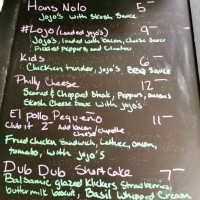 Hans Nolo 5-
Jojo's with Skosh Sauce
#Lojo (Loaded jojo's) 9-
Jojo's, loaded with bacon, cheese sauce
Pickled Peppers and Cilantro
Kids 6-
Chicken tender, jojo's BBQ Sauce
Philly Cheese 12-
Seared & Chopped Steak, Peppers, onions
Skosh Cheese Sauce with Jojo's
El pollo Pequeño 11-
Club it 2- Add bacon cheese chipotle
Fried chicken Sandwich, Lettuce, onion,
tomato, with jojo's
Dub Dub Shortcake 7-
Balsamic glazed Klickers Strawberries,
buttermilk biscuit, Basil Whipped Cream